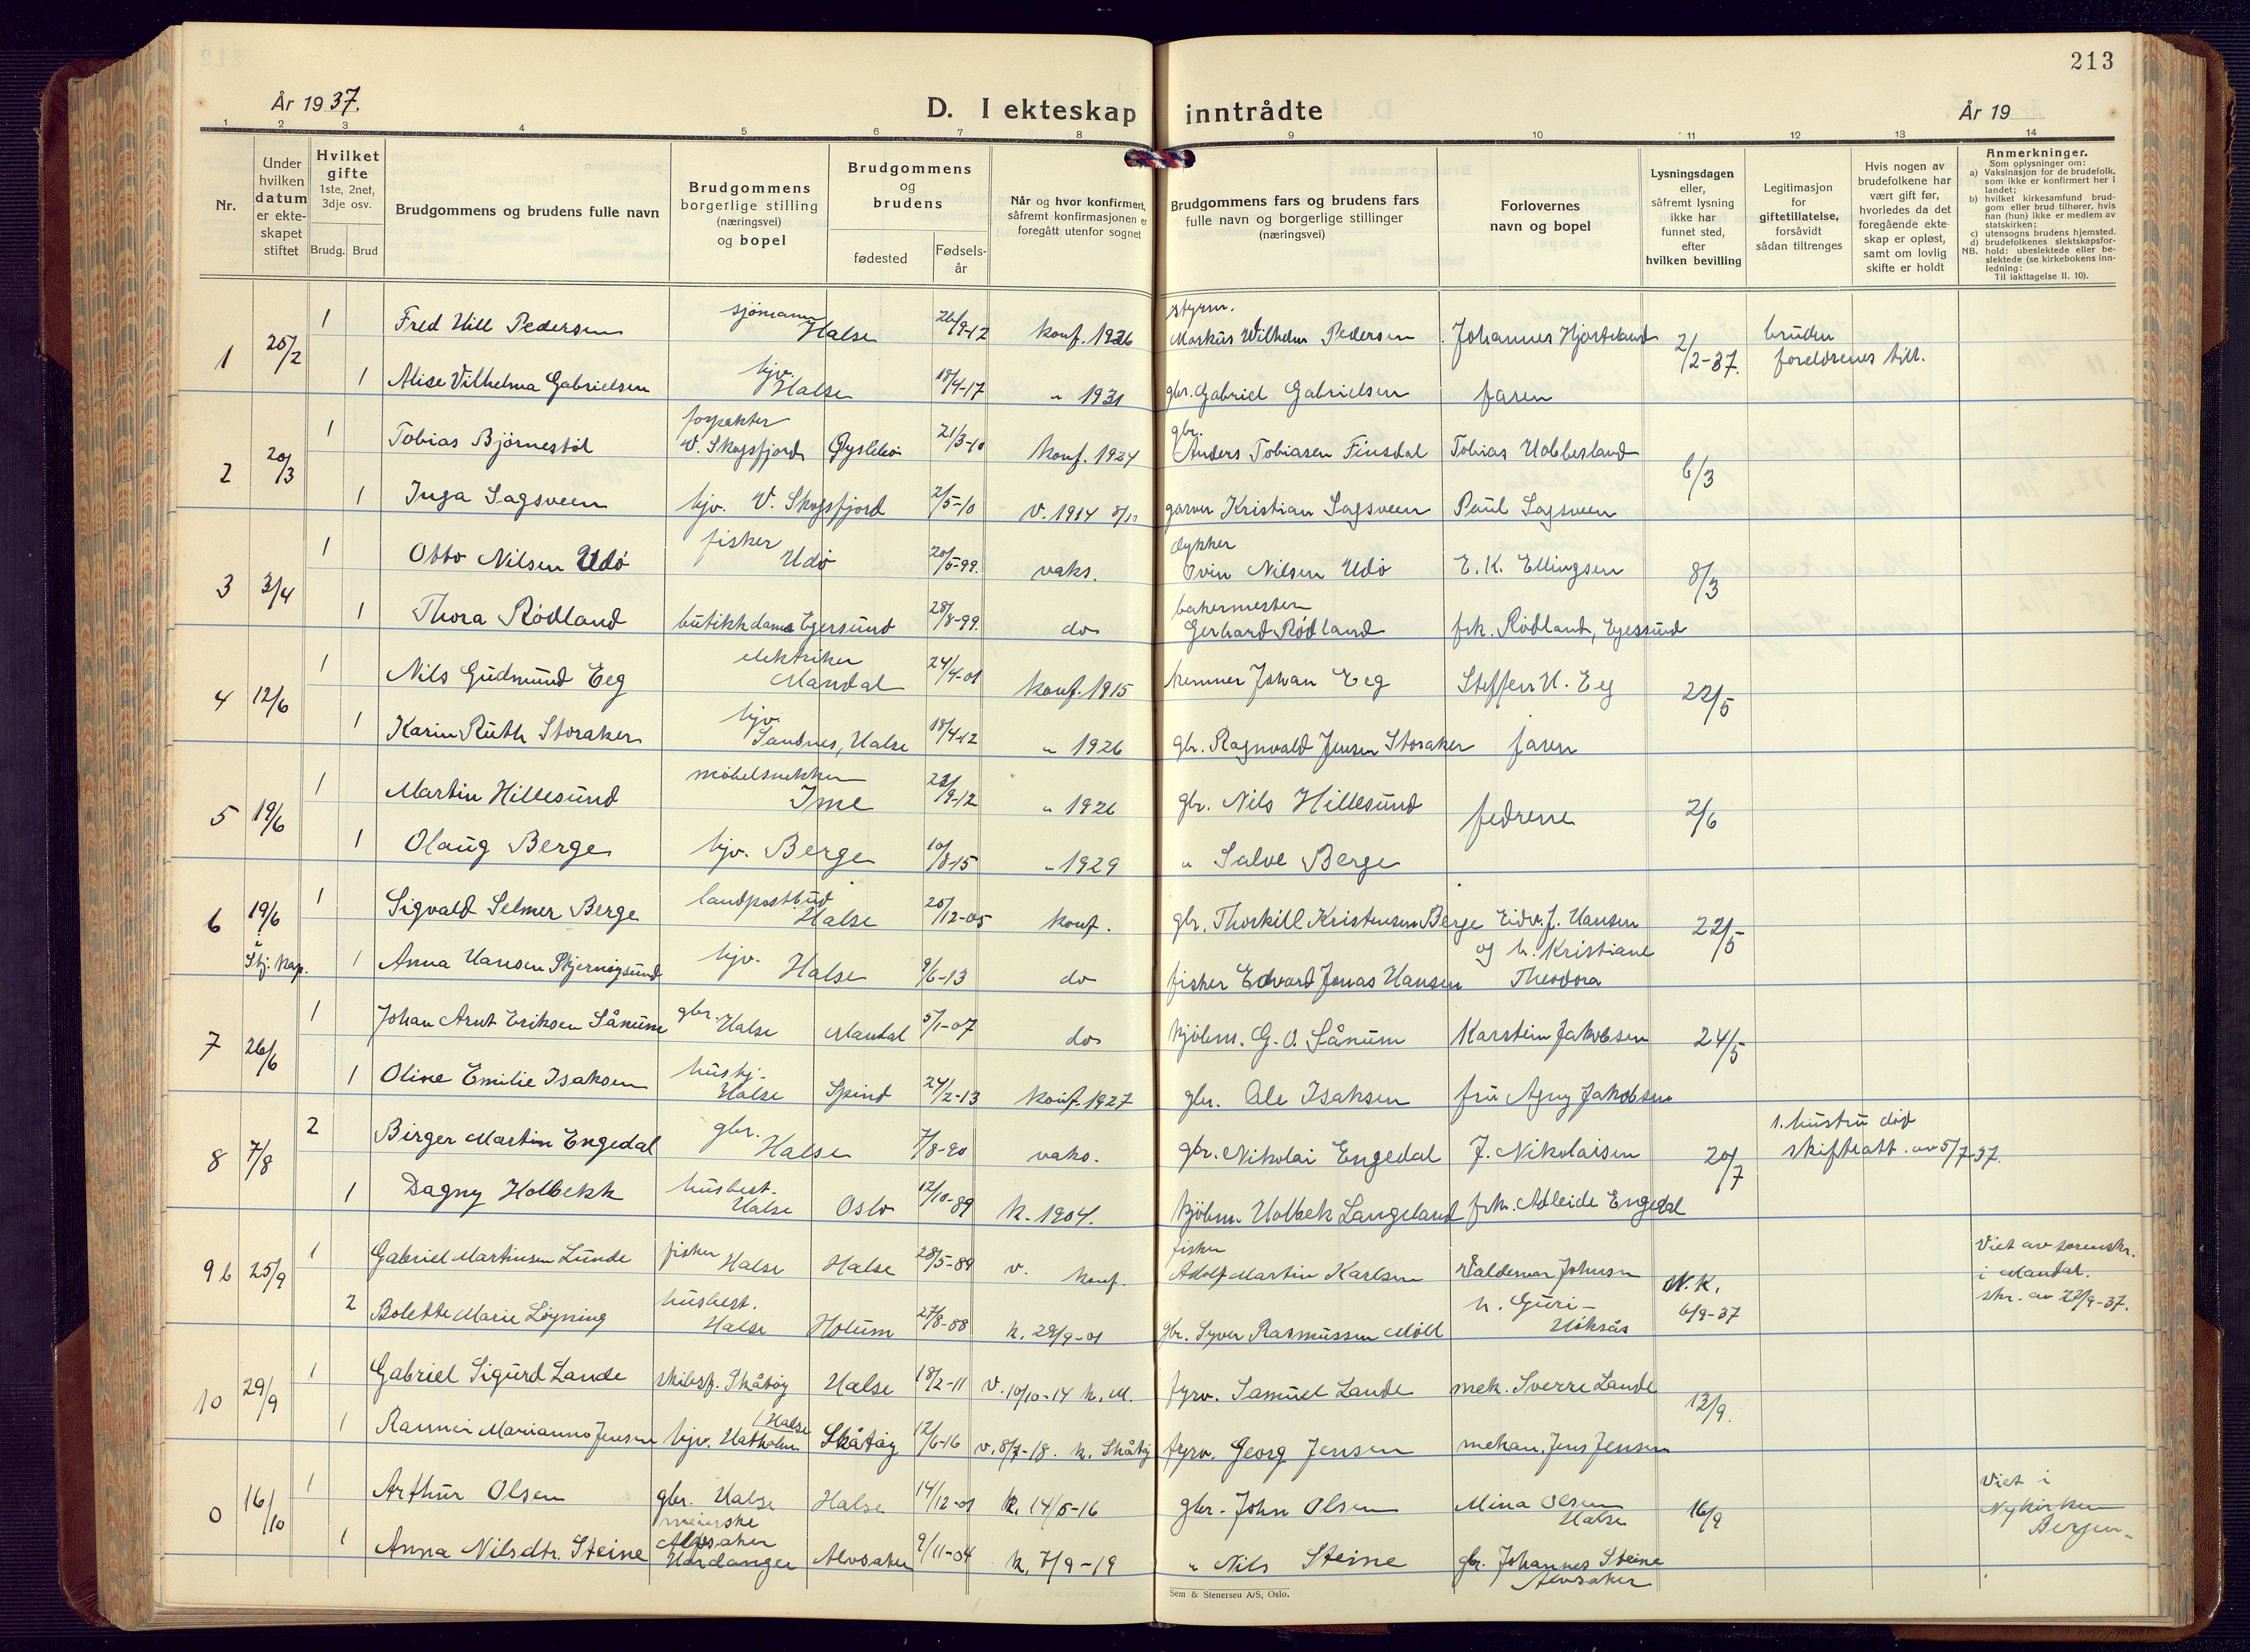 213
År 1937.
D. I ekteskap inntrådte
År 19
1 2 3 4 5 6 7 8 9 10 11 12 13 14
Nr.
Under hvilken datum er ekteskapet stiftet
Hvilket gifte 1ste, 2net, 3dje osv.
Brudg. Brud
Brudgommens og brudens fulle navn
Brudgommens borgerlige stilling (næringsvei) og bopel
Brudgommens og brudens
fødested
Fødsels-år
Når og hvor konfirmert, såfremt konfirmasjonen er foregått utenfor sognet
Brudgommens fars og brudens fars fulle navn og borgerlige stillinger (næringsvei)
Forlovernes navn og bopel
Lysningsdagen eller, såfremt lysning ikke har funnet sted, efter hvilken bevilling
Legitimasjon for giftetillatelse, forsåvidt sådan tiltrenges
Hvis nogen av brudefolkene har vært gift før, hvorledes da det foregående ekteskap er opløst, samt om lovlig skifte er holdt
Anmerkninger.
Som oplysninger om:
a) Vaksinasjon for de brudefolk, som ikke er konfirmert her i landet;
b) hvilket kirkesamfund brudgom eller brud tilhører, hvis han (hun) ikke er medlem av statskirken;
c) utensogns brudens hjemsted.
d) brudefolkenes slektskapsfor-
NB. hold: ubeslektede eller beslektede (se kirkebokens innledning: Til iakttagelse II. 10).
1 25/2 1 Fred Will Pedersen sjömann Halse 26/9-12 konf. 1926 styrm. Markus Wilhelm Pedersen Johannes Hjorteland 2/2-37. bruden foreldrenes till.
1 Alise Vilhelma Gabrielsen hjv. Halse 18/4-17 " 1931 gbr. Gabriel Gabrielsen faren
2 20/3 1 Tobias Björnestöl forpakter V. Skogsfjord Øyslebö 21/3-10 konf. 1924 gbr. Anders Tobiasen Finsdal Tobias Ubbesland 6/3
1 Inga Sagsveen hjv. V. Skogsfjord 2/5-10 v. 1914 garver Kristian Sagsveen Paul Sagsveen
3 3/4 1 Otto Nilsen Udö fisker Udö 20/5-99. vaks. dykker Nilsen Udö E. K. Ellingsen 8/3
1 Thora Rödland butikkdame Egersund 28/8-99. do bakermester Gerhard Rödland frk. Rödland, Egersund
4 12/6 1 Nils Gudmund Eeg elektriker Mandal 24/4-01 konf. 1915 kemner Johan Eeg Steffen N. Eeg 22/5
1 Karin Ruth Storaker hjv. Sandnes, Halse 18/4-12 " 1926 gbr. Ragnvald Jensen Storaker faren
5 19/6 1 Martin Hillesund möbelsnekker Ime 22/9-12 " 1926 gbr. Nils Hillesund fedrene 2/6
1 Olaug Berge hjv. Berge 10/8-15 " 1929 " Salve Berge
6 19/6 1 Sigvald Selmer Berge landpostbud Halse 25/12-05 konf. gbr. Thorkill Kristensen Berge Eidv. J. Hansen og h. Kristiane Theodora 22/5
Skj. kap. 1 Anna Hansen Skjernöysund hjv. Halse 9/6-13 do fisker Edvard Jonas Hansen
7 26/6 1 Johan Arnt Eriksen Sånum gbr. Halse Mandal 5/1-07 do kjöbm. G. O. Sånum Karstein Jakobsen 24/5
1 Oline Emilie Isaksen husbj. Halse Spind 24/2-13 konf. 1927 gbr. Ole Isaksen fru Agny Jakobsen
8 7/8 2 Birger Martin Engedal gbr. Halse 7/8-90 vaks. gbr. Nikolai Engedal J. Nikolaisen 20/7 1. hustru död skifteatt. av 5/7-37.
1 Dagny Holbekk husbest. Halse Oslo 12/10-89 k. 1904. kjöbm. Holbek Langeland frk. Adleide Engedal
9 b 25/9 1 Gabriel Martinsen Lunde fisker Halse Halse 28/5-89 v. konf. fisker Adolf Martin Karlsen Valdemar Johnsen N. K. 6/9-37 Viet av sorenskr. i Mandal. skr. av 27/9-37.
2 Bolette Marie Löyning husbest. Halse Holum 27/8-88 k. 29/9-01 gbr. Syver Rasmussen Möll h. Guri -
10 29/9 1 Gabriel Sigurd Lande skibsf. Skåtöy Halse 18/2-11 v. 10/10-14 k. M. fyrv. Samuel Lande mek. Sverre Lande 13/9.
1 Marianne Jensen hjv. Hatholm. / Halse Skåtöy 12/6-16 v. 8/7-18. k. Skåtöy fyrv. Georg Jensen mekan. Jens Jensen
0 16/10 1 Arthur Olsen gbr. Halse Halse 14/12-01 k. 14/5-16 gbr. John Olsen Mina Olsen Halse 16/9 Viet i Nykirken Bergen-
1 Anna Nilsdtr. Steine meierske Alvsaker Hardanger Alvsaker 9/11-04 k. 7/9-19 " Nils Steine gbr. Johannes Steine Alvsaker
Sem & Stenersen A/S, Oslo.